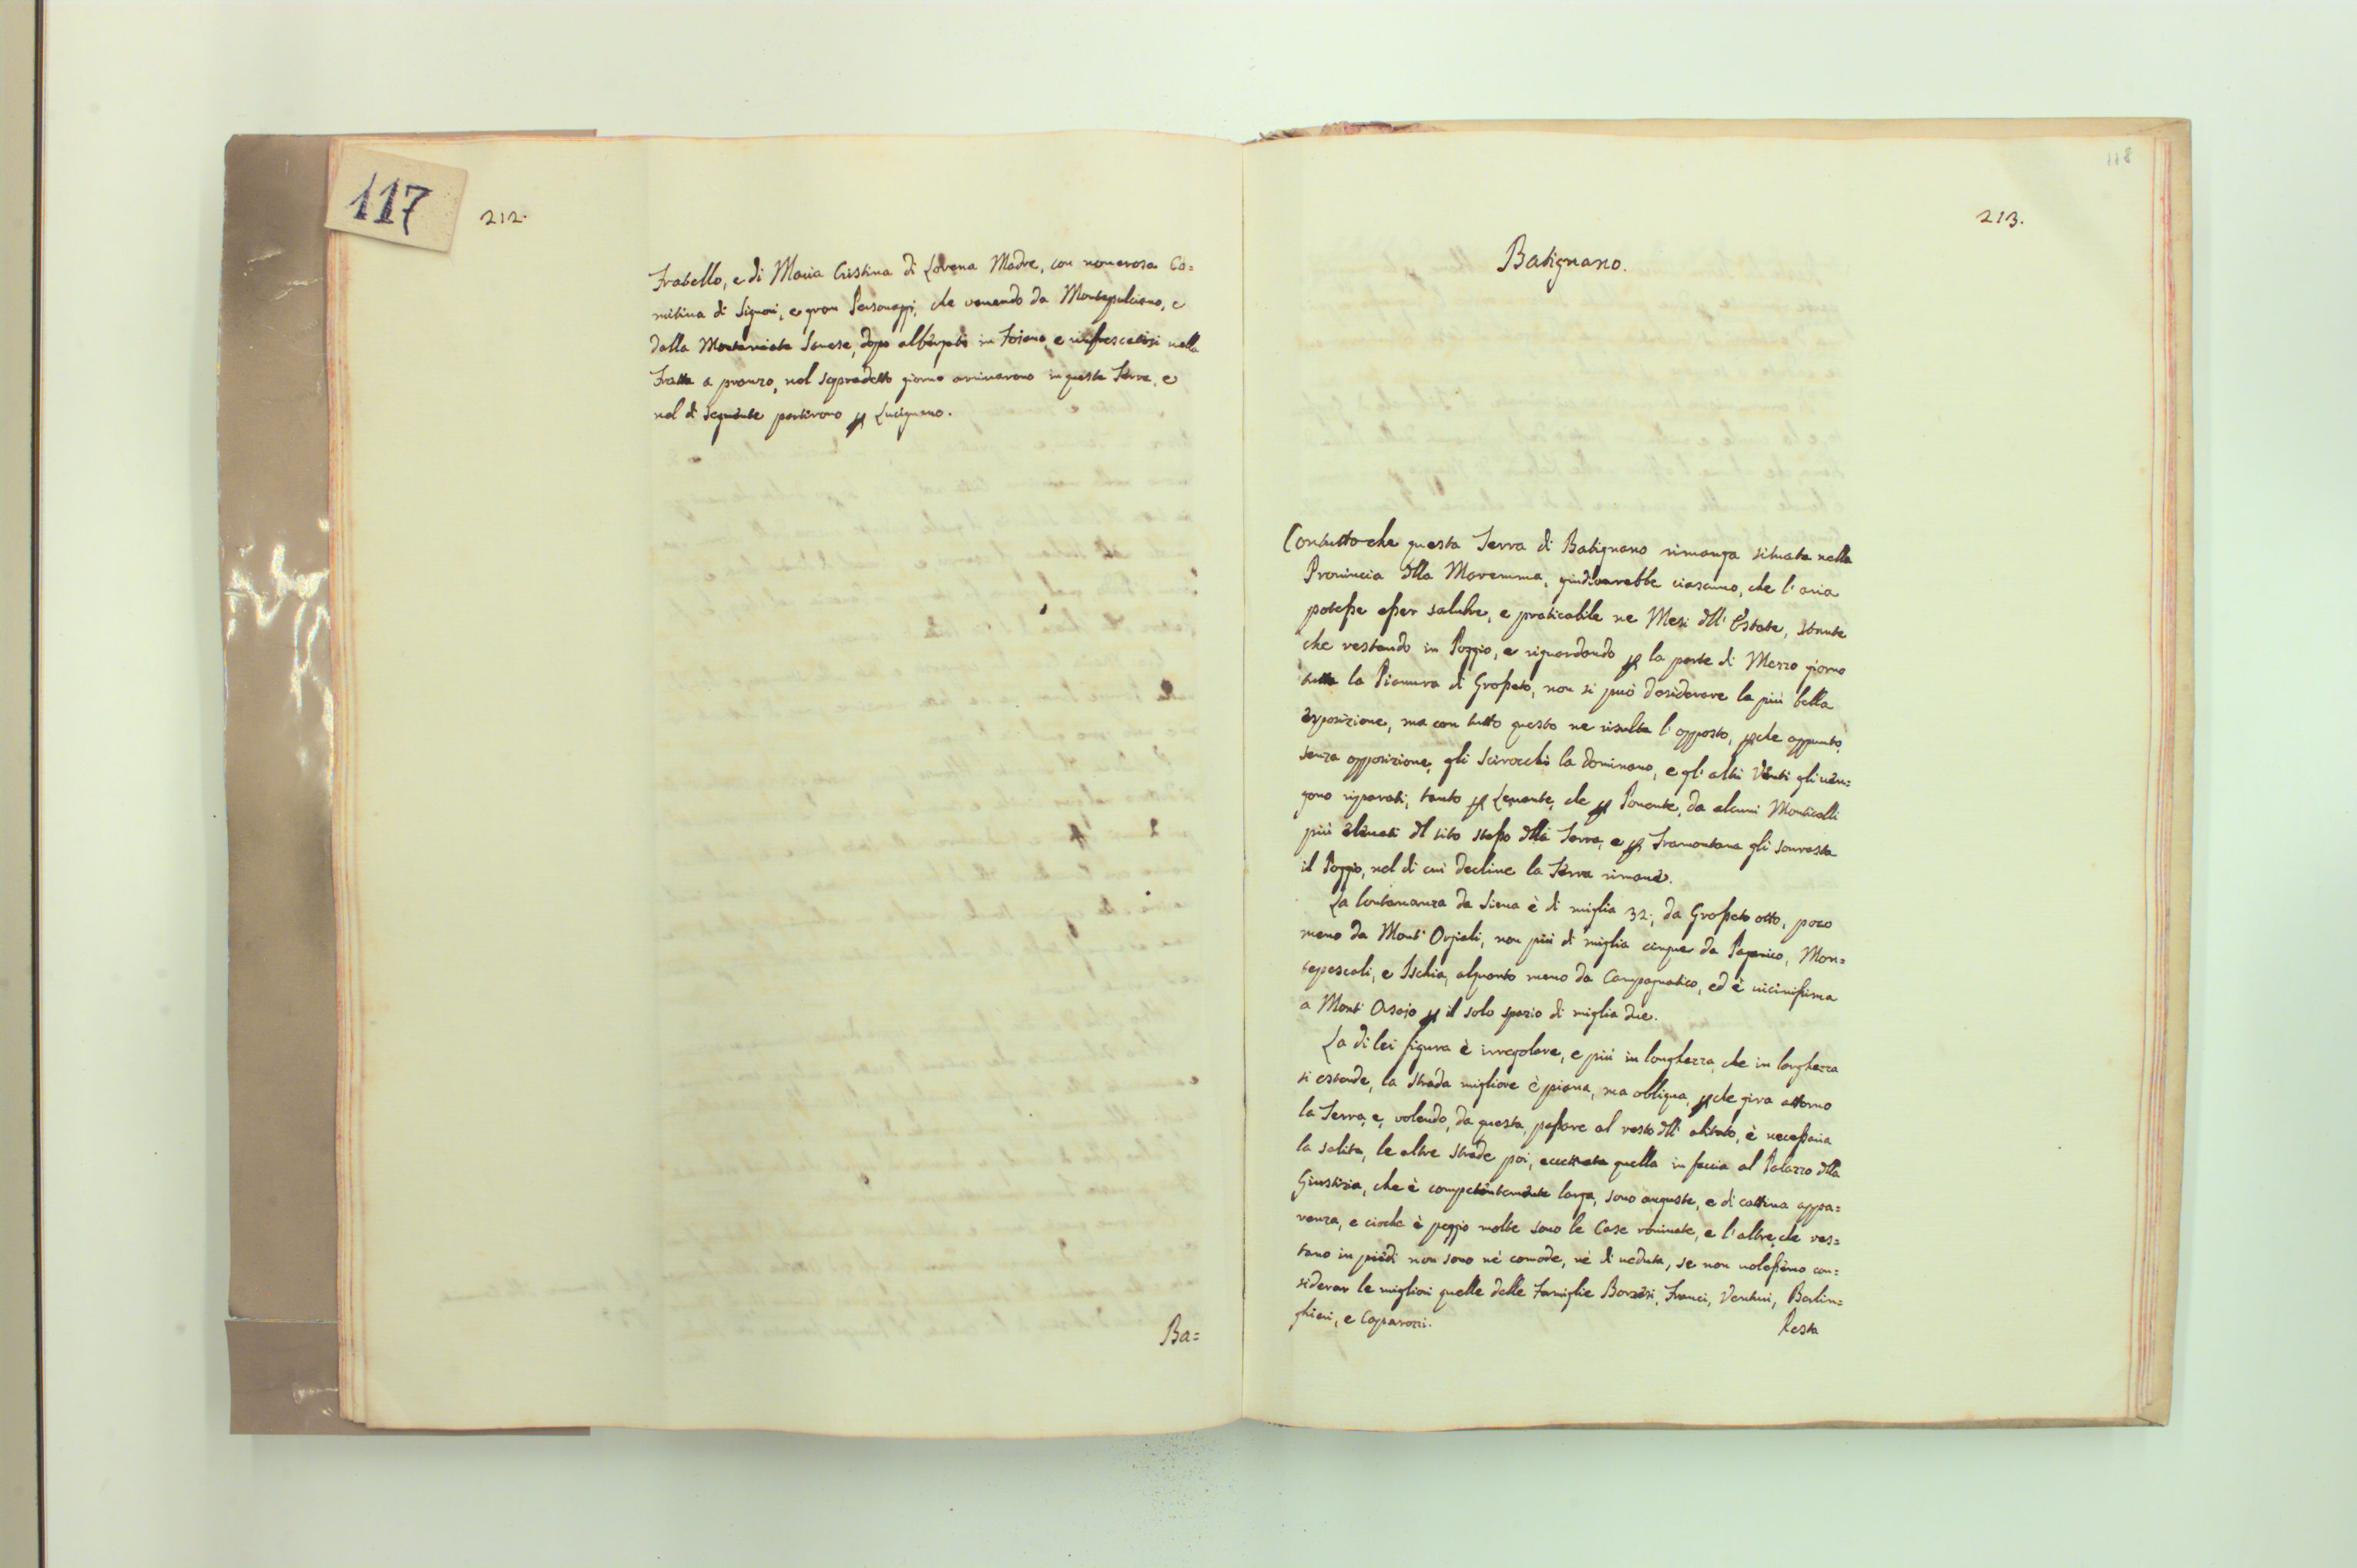 117
212.
Fratello, e di Maria Cristina di Lorena Madre, con nomerosa Co=
mitiva di Signori, e gran Personaggi, che venendo da Montepulciano, e
dalla Montamiata Sanese, dopo albergati in Foiano, e rinfrescatisi nella
Fratta a pranzo, nel sopradetto giorno arrivarono in questa Terra, e
nel dì seguente partirono ꝑ Lucignano.
Ba=
118
213.
Batignano.
Contuttoche questa Terra di Batignano rimanga situata nella
Provincia dlla Maremma, giudicarebbe ciascuno, che l'aria
potesse esser salubre, e praticabile ne Mesi dll' Estate, stante
che restando in Poggio, e riguardando ꝑ la parte di Mezzo giorno
tutta la Pianura di Grosseto, non si può desiderare la più bella
esposizione, ma con tutto questo ne risulta l'opposto, ꝑche appunto,
senza opposizione, gli Scirocchi la dominano, e gl'altri Venti gli ven=
gono riparati, tanto ꝑ Levante, che ꝑ Ponente, da alcuni Monticelli
più elevati dl sito stesso dlla Terra, e ꝑ Tramontana gli sovrasta
il Poggio, nel di cui declive la Terra rimane.
La lontananza da Siena è di miglia 32; da Grosseto otto, poco
meno da Mont' Orgiali, non più di miglia cinque da Paganico, Mon=
tepescali, e Ischia, alquanto meno da Campagnatico, ed è vicinissima
a Mont' Orsajo ꝑ il solo spazio di miglia due.
La di lei figura è irregolare, e più in longhezza, che in larghezza
si estende, la strada migliore è piana, ma obliqua, ꝑche gira attorno
la Terra, e, volendo, da questa, passare al resto dll' abitato, è necessaria
la salita, le altre strade poi, eccettuata quella in faccia al Palazzo dlla
Giustizia, che è competentemente larga, sono anguste, e di cattiva appa=
renza, e ciochè è peggio molte sono le Case rovinate, e l'altre, che res=
tano in piedi non sono nè comode, nè di veduta, se non volessimo con=
siderar le migliori quelle delle Famiglie Borzesi, Franci, Venturi, Berlin=
ghieri, e Caparozzi.
Resta